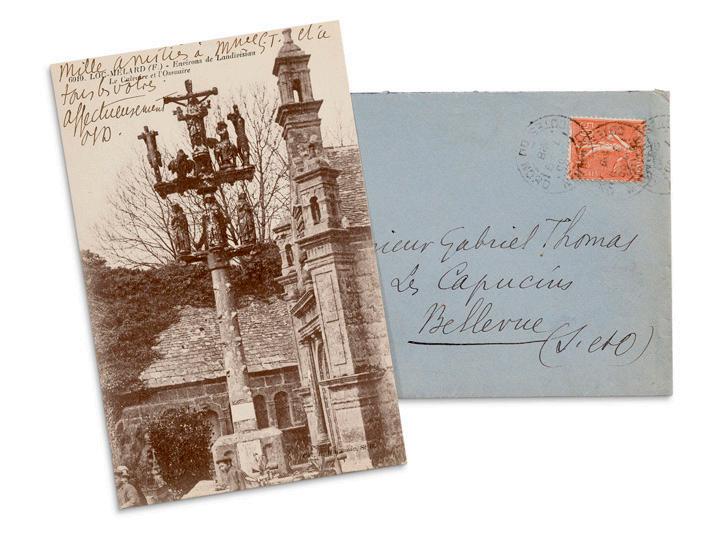 Mille amitiés à Mme G.T. et à
6010. LOC-MÉLARD (F.) - Environs de Landivisiau
Le Calvaire et l'Ossuaire
tous vôtre
affectueusement
sieur Gabriel Thomas
Les Capucins
Bellevue
(S. et O)